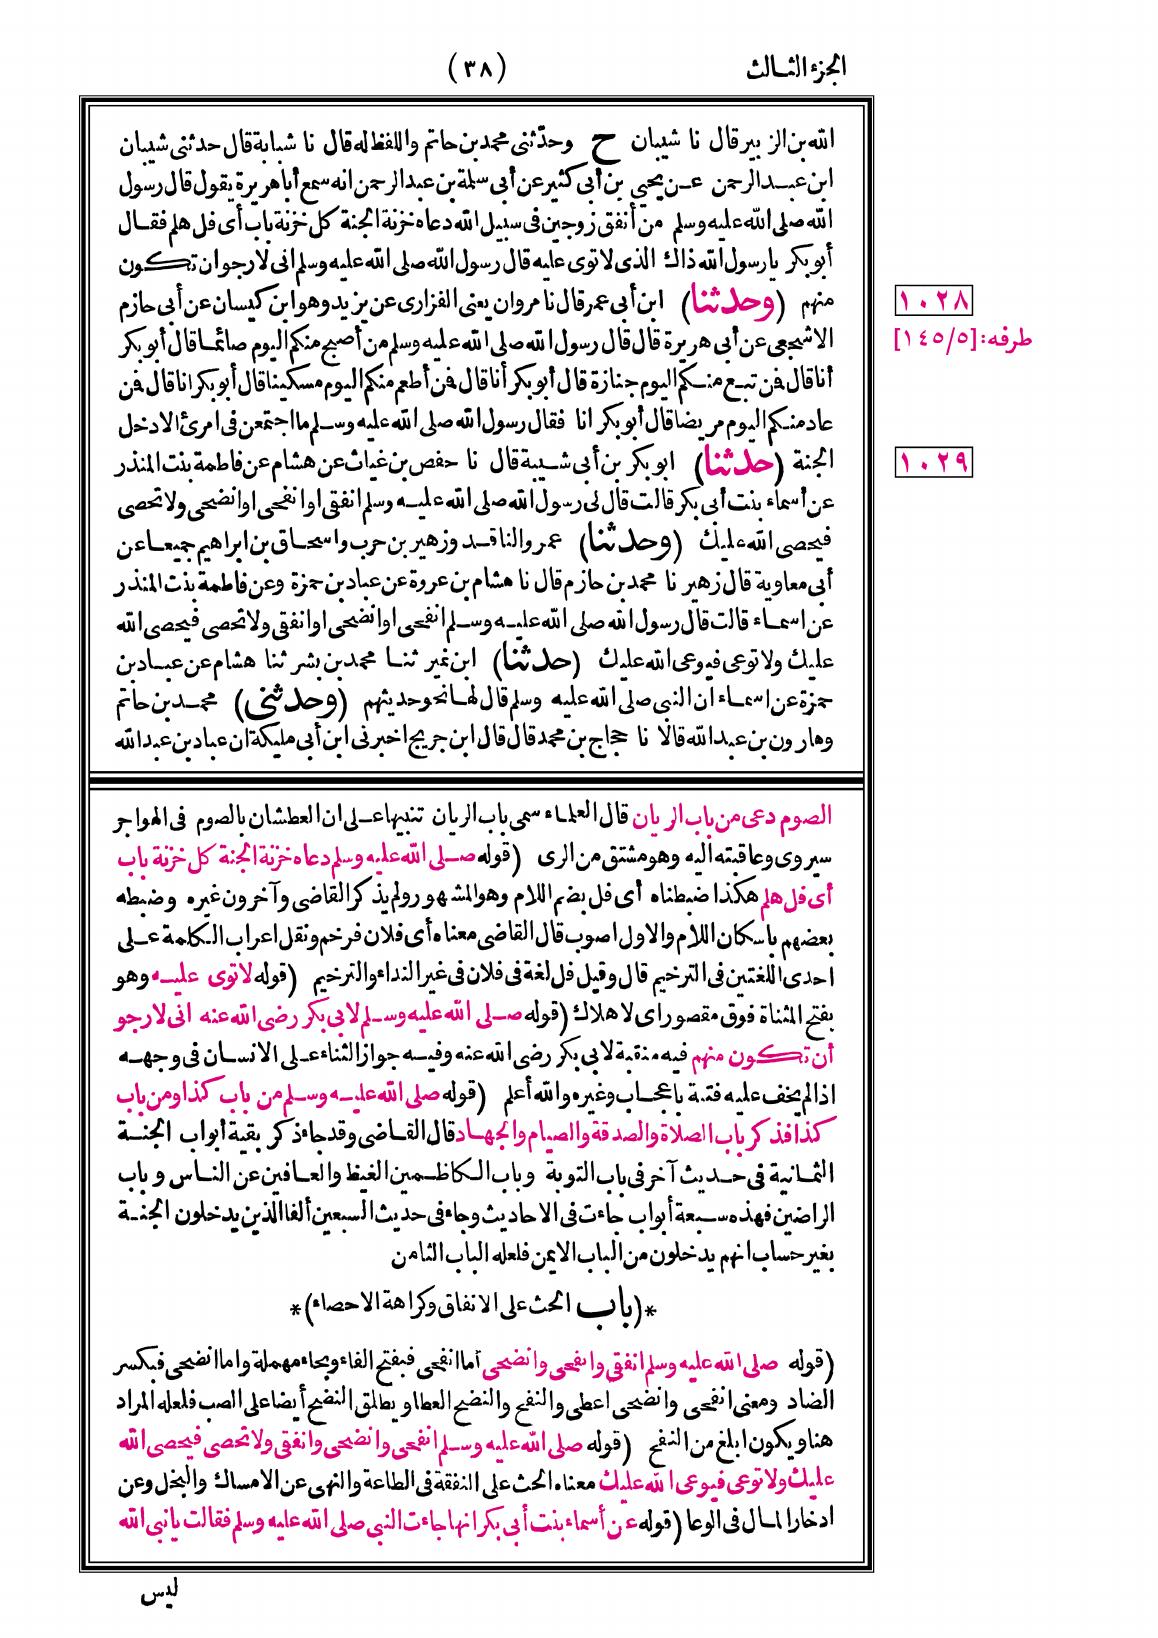 الجزء الثالث
(٣٨)
الله بن الزبير قال نا شيبان ح وحدّثنى محمد بن حاتم واللفظ له قال نا شبابة قال حدثنى شيبان
ابن عبد الرحمن عن يحيى بن أبى كثير عن أبى سلمة بن عبد الرحمن انه سمع أبا هريرة يقول قال رسول
الله صلى الله عليه وسلم من أنفق زوجين فى سبيل الله دعاه خزنة الجنة كل خزنة باب أى فل هلم فقال
أبو بكر يا رسول الله ذاك الذى لا توى عليه قال رسول الله صلى الله عليه وسلم انى لارجو ان تكون
منهم (وحدثنا) ابن أبى عمر قال نا مروان يعنى الفزارى عن يزيد وهو ابن كيسان عن أبى حازم
١٠٢٨
الاشجعى عن أبى هريرة قال قال رسول الله صلى الله عليه وسلم من أصبح منكم اليوم صائما قال أبو بكر
طرفه: [١٤٥/٥]
أنا قال فمن تبع منكم اليوم جنازة قال أبو بكر أنا قال فمن أطعم منكم اليوم مسكينا قال أبو بكر انا قال فمن
عاد منكم اليوم مريضا قال أبو بكر انا فقال رسول الله صلى الله عليه وسلم ما اجتمعن فى امرئ الا دخل
الجنة (حدثنا) ابو بكر بن أبى شيبة قال نا حفص بن غياث عن هشام عن فاطمة بنت المنذر
١٠٢٩
عن أسماء بنت أبى بكر قالت قال لى رسول الله صلى الله عليه وسلم انفقى اوانفحى اوانضحى ولا تحصى
فيحصى الله عليك (وحدثنا) عمرو الناقد وزهير بن حرب واسحاق بن ابراهيم جميعا عن
أبى معاوية قال زهير نا محمد بن حازم قال نا هشام بن عروة عن عباد بن حمزة وعن فاطمة بنت المنذر
عن اسماء قالت قال رسول الله صلى الله عليه وسلم انفحى اوانضحى اوانفقى ولا تحصى فيحصى الله
عليك ولا توعى فيوعى الله عليك (حدثنا) ابن نمير ثنا محمد بن بشر ثنا هشام عن عباد بن
حمزة عن اسماء ان النبى صلى الله عليه وسلم قال لها نحو حديثهم (وحدثنى) محمد بن حاتم
وهارون بن عبد الله قالا نا حجاج بن محمد قال قال ابن جريج اخبرنى ابن أبى مليكة ان عباد بن عبد الله
الصوم دعى من باب الريان قال العلماء سمى باب الريان تنبيها على ان العطشان بالصوم فى الهواجر
سيروى وعاقبته اليه وهو مشتق من الرى (قوله صلى الله عليه وسلم دعاه خزنة الجنة كل خزنة باب
أى فل هلم هكذا ضبطناه أى فل بضم اللام وهو المشهور ولم يذكر القاضى وآخرون غيره وضبطه
بعضهم باسكان اللام والاول اصوب قال القاضى معناه أى فلان فرخم ونقل اعراب الكلمة على
احدى اللغتين فى الترخيم قال وقيل فل لغة فى فلان فى غير النداء والترخيم (قوله لا توى عليه وهو
بفتح المثناة فوق مقصور اى لا هلاك (قوله صلى الله عليه وسلم لابى بكر رضى الله عنه انى لارجو
أن تكون منهم فيه منقبة لابى بكر رضى الله عنه وفيه جواز الثناء على الانسان فى وجهه
اذا لم يخف عليه فتنة باعجاب وغيره والله أعلم (قوله صلى الله عليه وسلم من باب كذا ومن باب
كذا فذكر باب الصلاة والصدقة والصيام والجهاد قال القاضى وقد جاء ذكر بقية أبواب الجنة
الثمانية فى حديث آخر فى باب التوبة وباب الكاظمين الغيظ والعافين عن الناس وباب
الراضين فهذه سبعة أبواب جاءت فى الاحاديث وجاء فى حديث السبعين ألفا الذين يدخلون الجنة
بغير حساب انهم يدخلون من الباب الايمن فلعله الباب الثامن
*(باب الحث على الانفاق وكراهة الاحصاء)*
(قوله صلى الله عليه وسلم انفقى وانفحى وانضحى أما انفحى فبفتح الفاء وبحاء مهملة واما انضحى فبكسر
الضاد ومعنى انفحى وانضحى اعطى والنفح والنضح العطا ويطلق النضح أيضا على الصب فلعله المراد
هنا ويكون ابلغ من النفح (قوله صلى الله عليه وسلم انفحى وانضحى وانفقى ولا تحصى فيحصى الله
عليك ولا توعى فيوعى الله عليك معناه الحث على النفقة فى الطاعة والنهى عن الامساك والبخل وعن
ادخار المال فى الوعا (قوله عن أسماء بنت أبى بكر انها جاءت النبى صلى الله عليه وسلم فقالت يا نبى الله
ليس